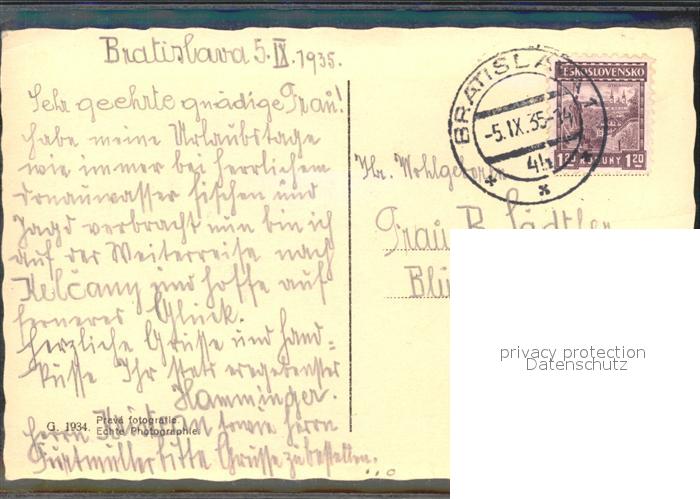 Bratislava 5.IX.1935.
Sehr geehrte gnädige Frau!
habe meine Urlaubstage
wie immer bei herrlichem
Donauwasser fischen und
Jagd verbracht nun bin ich
auf der Weiterreise nach
Kelčany und hoffe auf
ferneres Glück.
herzliche Grüsse und Hand-
küsse Ihr stets ergebenster
Hamminger.
herrn sowie herrn
bitte Grüsse zu bestellen.
G. 1934. Pravá fotografie.
Echte Photographie.
BRATISLAVA 1
-5.IX.35-14
4h
ČESKOSLOVENSKO
1.20 KORUNY 1.20
Hr. Wohlgeboren
Frau B.
privacy protection
Datenschutz